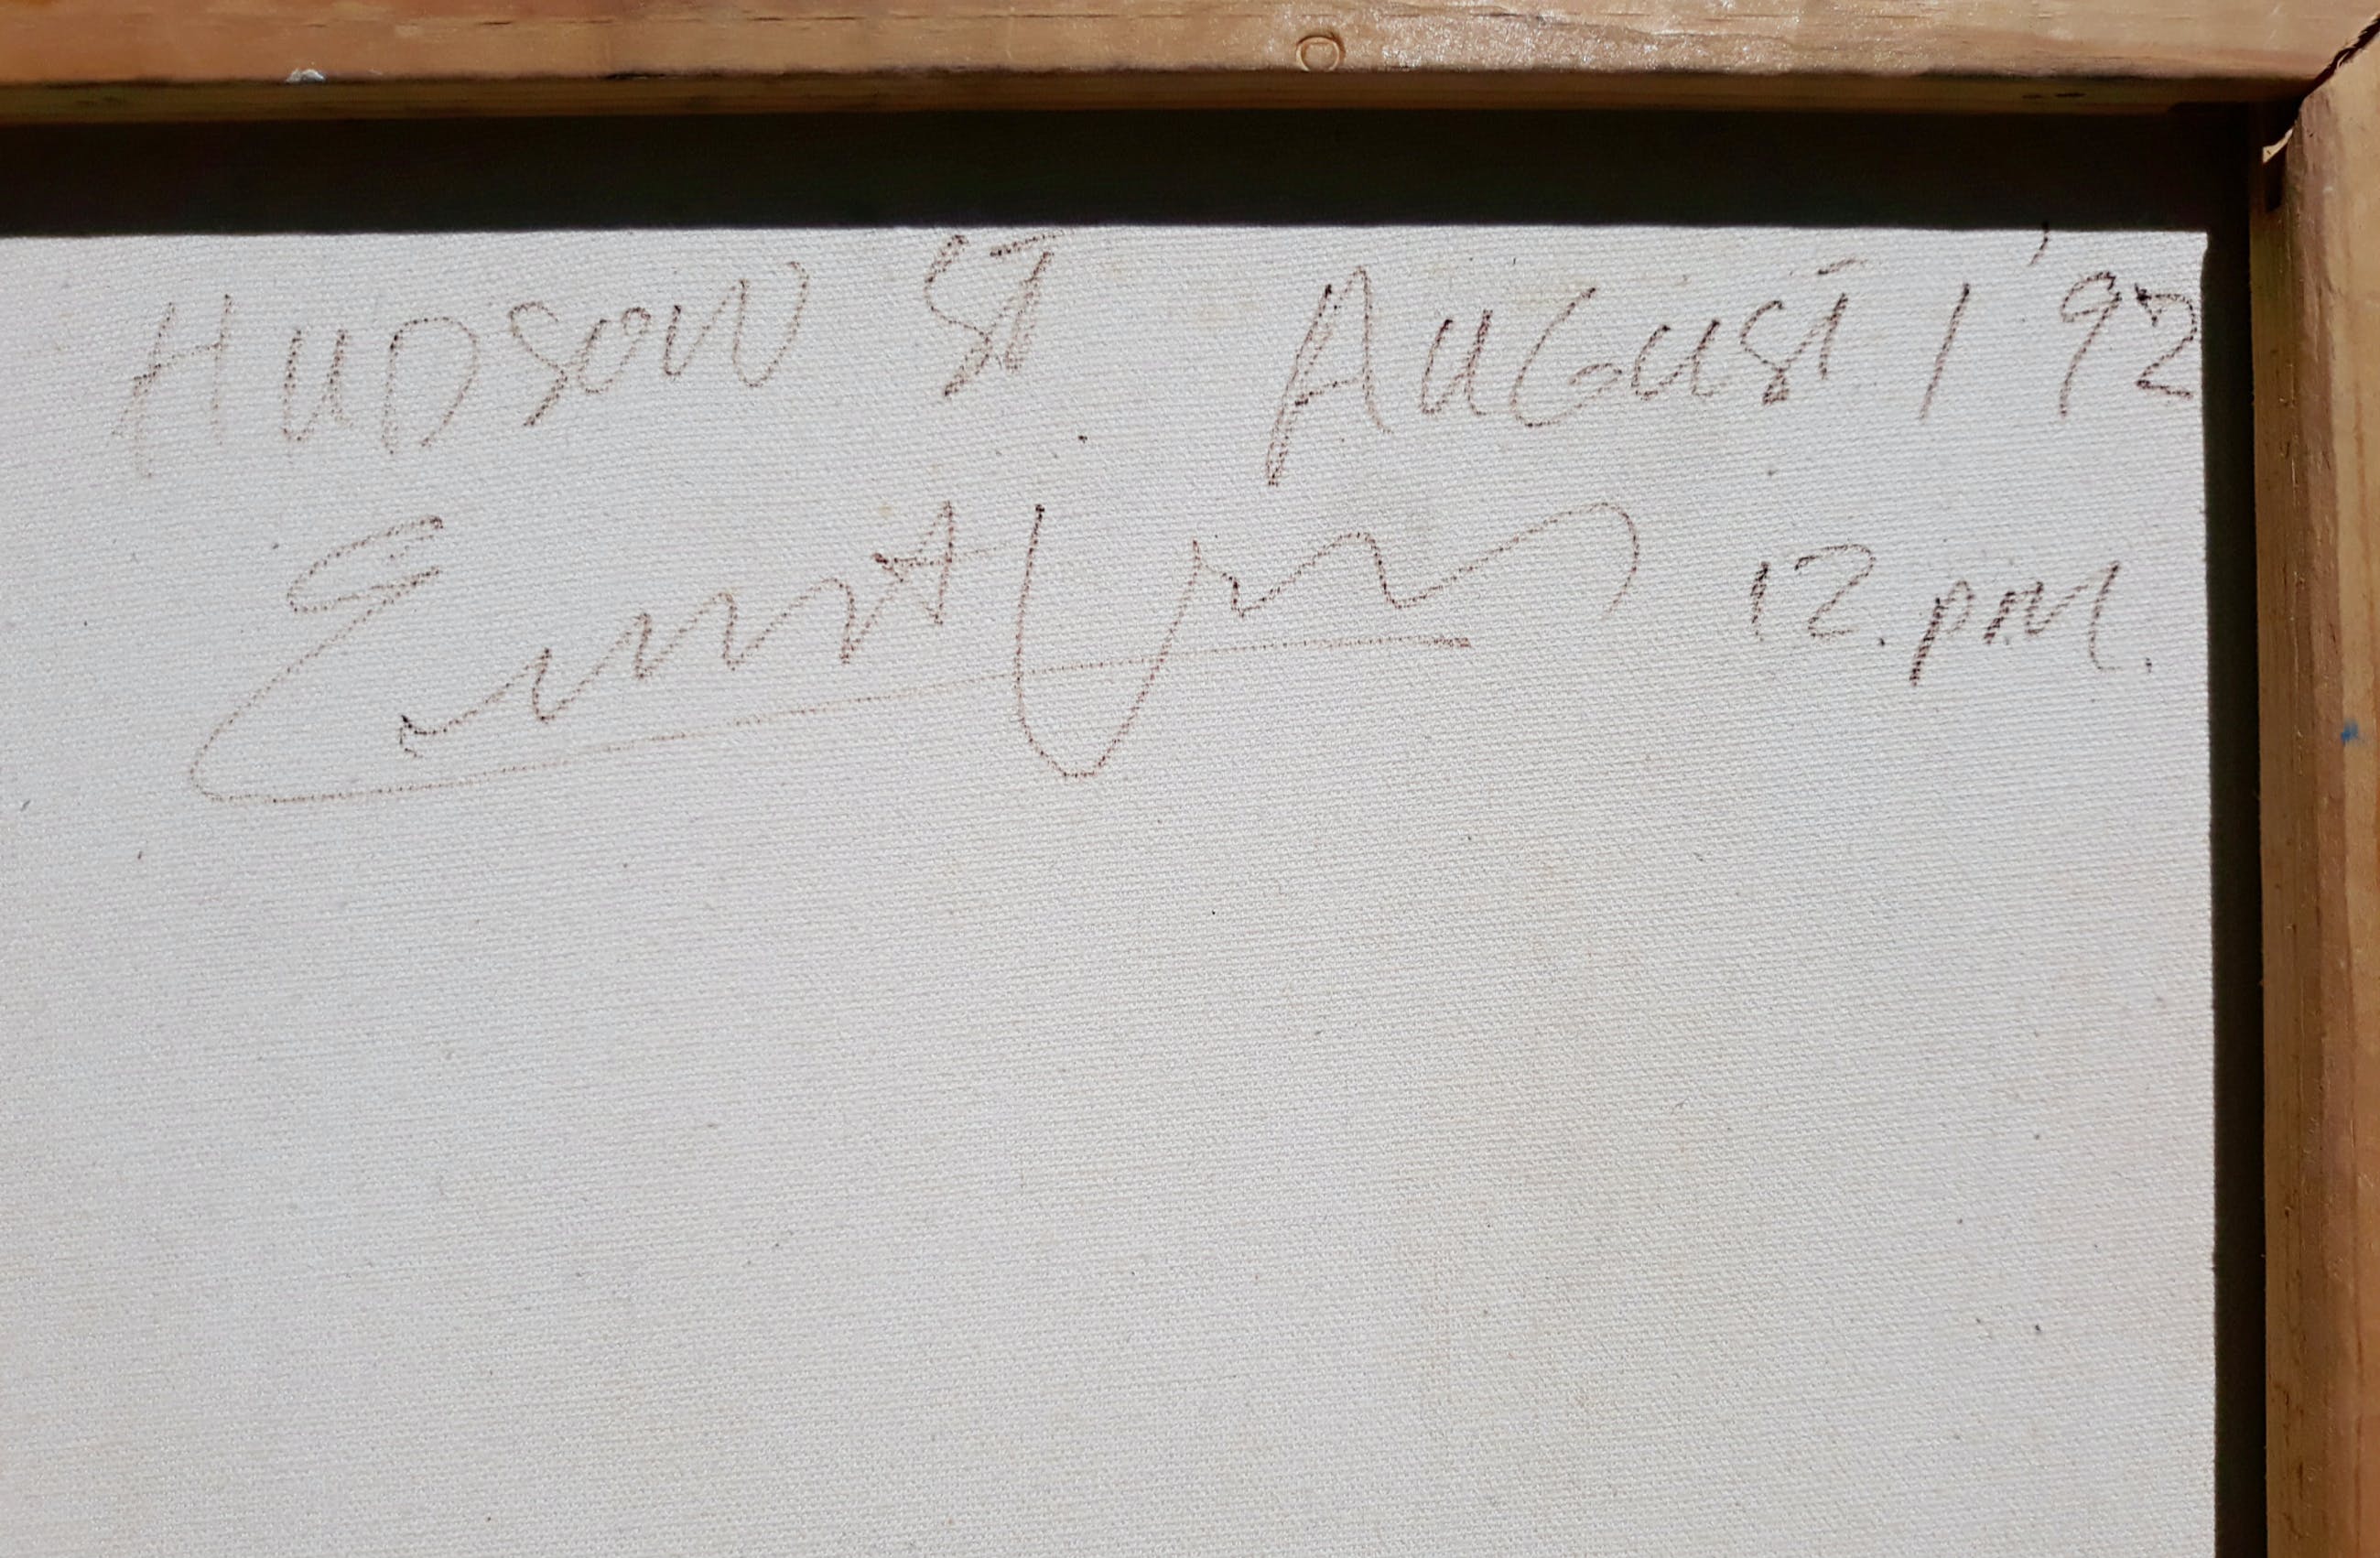 HUDSON ST. AUGUST 1 '92
12. pm.